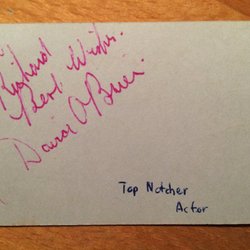 Richard
Best Wishes.
David O'Brien.
Top Notcher
Actor